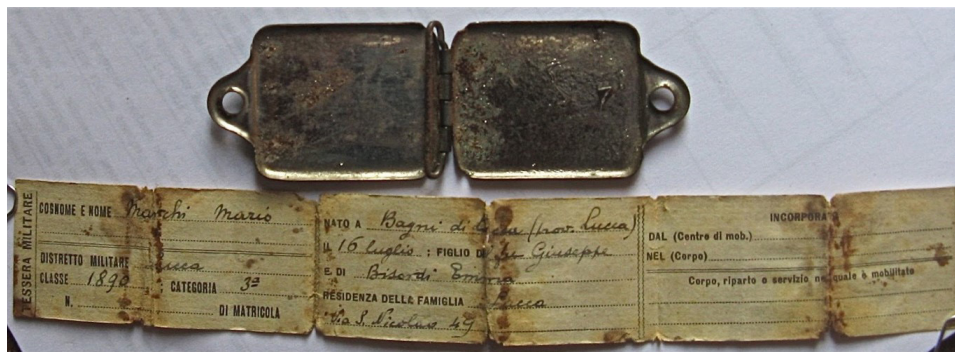 TESSERA MILITARE
COSNOME E NOME Marchi Mario
DISTRETTO MILITARE Lucca
CLASSE 1890 CATEGORIA 3ª
N. DI MATRICOLA
NATO A Bagni di Lucca (prov. Lucca)
IL 16 luglio ; FIGLIO DI Giuseppe
E DI Bisordi Emma
RESIDENZA DELLA FAMIGLIA Lucca
Via S. Nicolao 49
INCORPORA
DAL (Centro di mob.)
NEL (Corpo)
Corpo, riparto o servizio nel quale è mobilitato
7